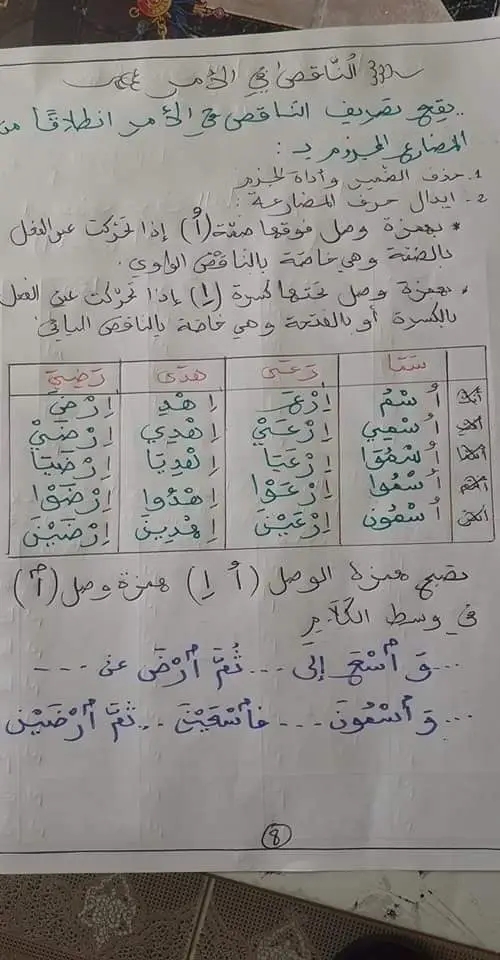 النّاقص في الأمر
يقع تصريف الناقص في الأمر انطلاقًا من
المضارع المجزوم بـ :
1. حذف الضمير وأداة الجزم
2- ابدال حرف المضارعة :
* بهمزة وصل فوقها ضمّة (اُ) إذا تحرّكت عين الفعل
بالضمّة وهي خاصّة بالناقص الواوي.
* بهمزة وصل تحتها كسرة (اِ) إذا تحرّكت عين الفعل
بالكسرة أو بالفتحة وهي خاصّة بالناقص اليائي.
سَمَا رَعَى هدَى رَضِيَ
أنتَ اُسْمُ اِرْعَ اِهْدِ اِرْضَ
أنتِ اُسْمِي اِرْعَيْ اِهْدِي اِرْضَيْ
أنتما اُسْمُوَا اِرْعَيَا اِهْدِيَا اِرْضَيَا
أنتم اُسْمُوا اِرْعَوْا اِهْدُوا اِرْضَوْا
أنتنّ اُسْمُونَ اِرْعَيْنَ اِهْدِينَ اِرْضَيْنَ
تصبح همزة الوصل (اُ اِ) همزة وصل (ٱ)
في وسط الكَلَامِ
...وَ ٱسْعَ إلى ... ثُمَّ ٱرْضَ عن ---
... وَ ٱسْمُونَ --- فٱسْعَيْنَ ... ثُمَّ ٱرْضَيْنَ
8